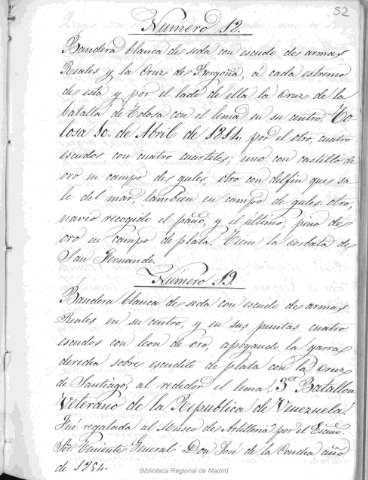 52
Numero 12.
Bandera blanca de seda con escudo de armas
Reales y la Cruz de Borgoña, á cada estremo
de esta y por el lado de ella la Cruz de la
batalla de Tolosa con el lema en su centro, To
losa 10. de Abril de 1814. por el otro, cuatro
escudos con cuatro cuarteles, uno con castillo de
oro en campo de gules, otro con delfin que sa
le del mar, tambien en campo de gules, otro,
navio recogido el paño, y el ultimo, pino de
oro en campo de plata. Tiene la corbata de
San Fernando.
Numero 13.
Bandera blanca de seda con escudo de armas
Reales en su centro, y en sus puntas cuatro
escudos con leon de oro, apoyando la garra
derecha sobre escudito de plata con la Cruz
de Santiago, al rededor el lema, 3º. Batallon
Veterano de la Republica de Venezuela.
Fué regalada al Museo de Artilleria por el Escmo.
Sor. Teniente General Don José de la Concha año
de 1854.
Biblioteca Regional de Madrid